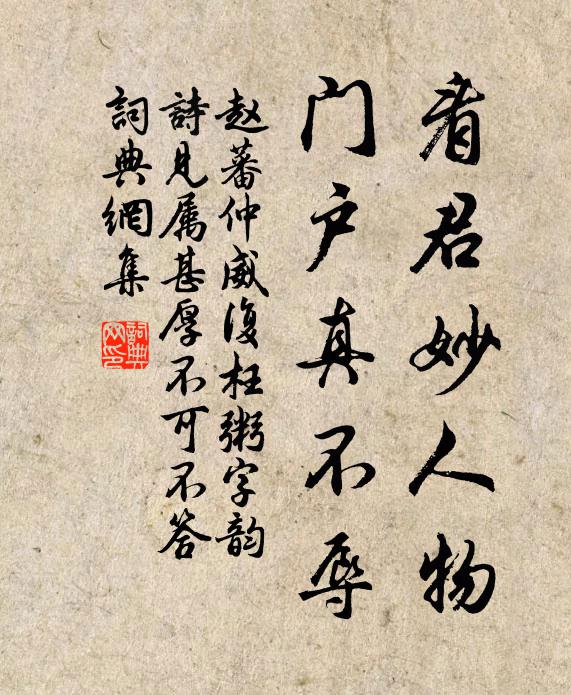 看君妙人物
门户真不辱
赵蕃仲威復枉粥字韵
詩見属甚厚不可不答
詞典網集
詞典网印